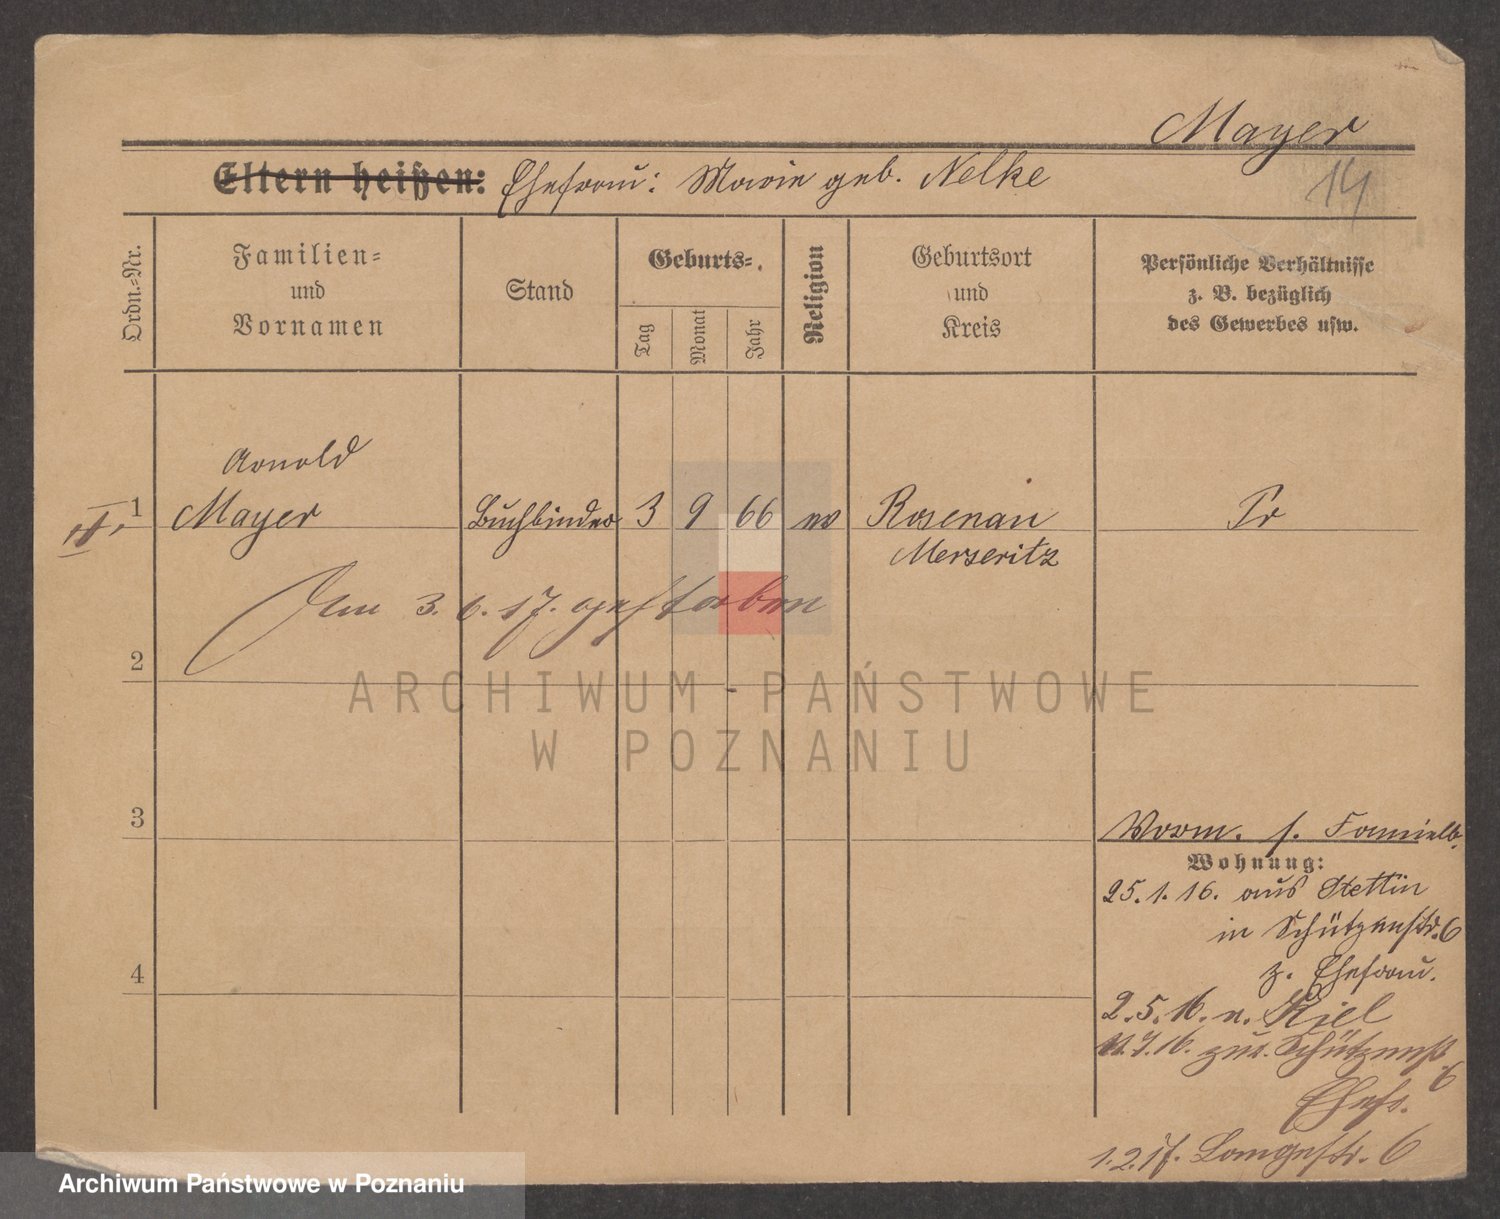 Mayer
14
Eltern heißen: Ehefrau: Marie geb. Nelke
Ordn.-Nr.
Familien-
und
Vornamen
Stand
Geburts-
Tag
Monat
Jahr
Religion
Geburtsort
und
Kreis
Persönliche Verhältnisse
z. B. bezüglich
des Gewerbes usw.
Arnold
1 Mayer Buchbinder 3 9 66 ev Rosenau Pr
Meseritz
Am 3. 6. 17. gestorben
2
3
4
Verm. s. Familb.
Wohnung:
25.1.16. aus Stettin
in Schützenstr. 6
z. Ehefrau.
2.5.16. n. Kiel
7.16. zur. Schützenst
6
Ehefr.
1.2.17. Langestr. 6
ARCHIWUM PAŃSTWOWE
W POZNANIU
Archiwum Państwowe w Poznaniu